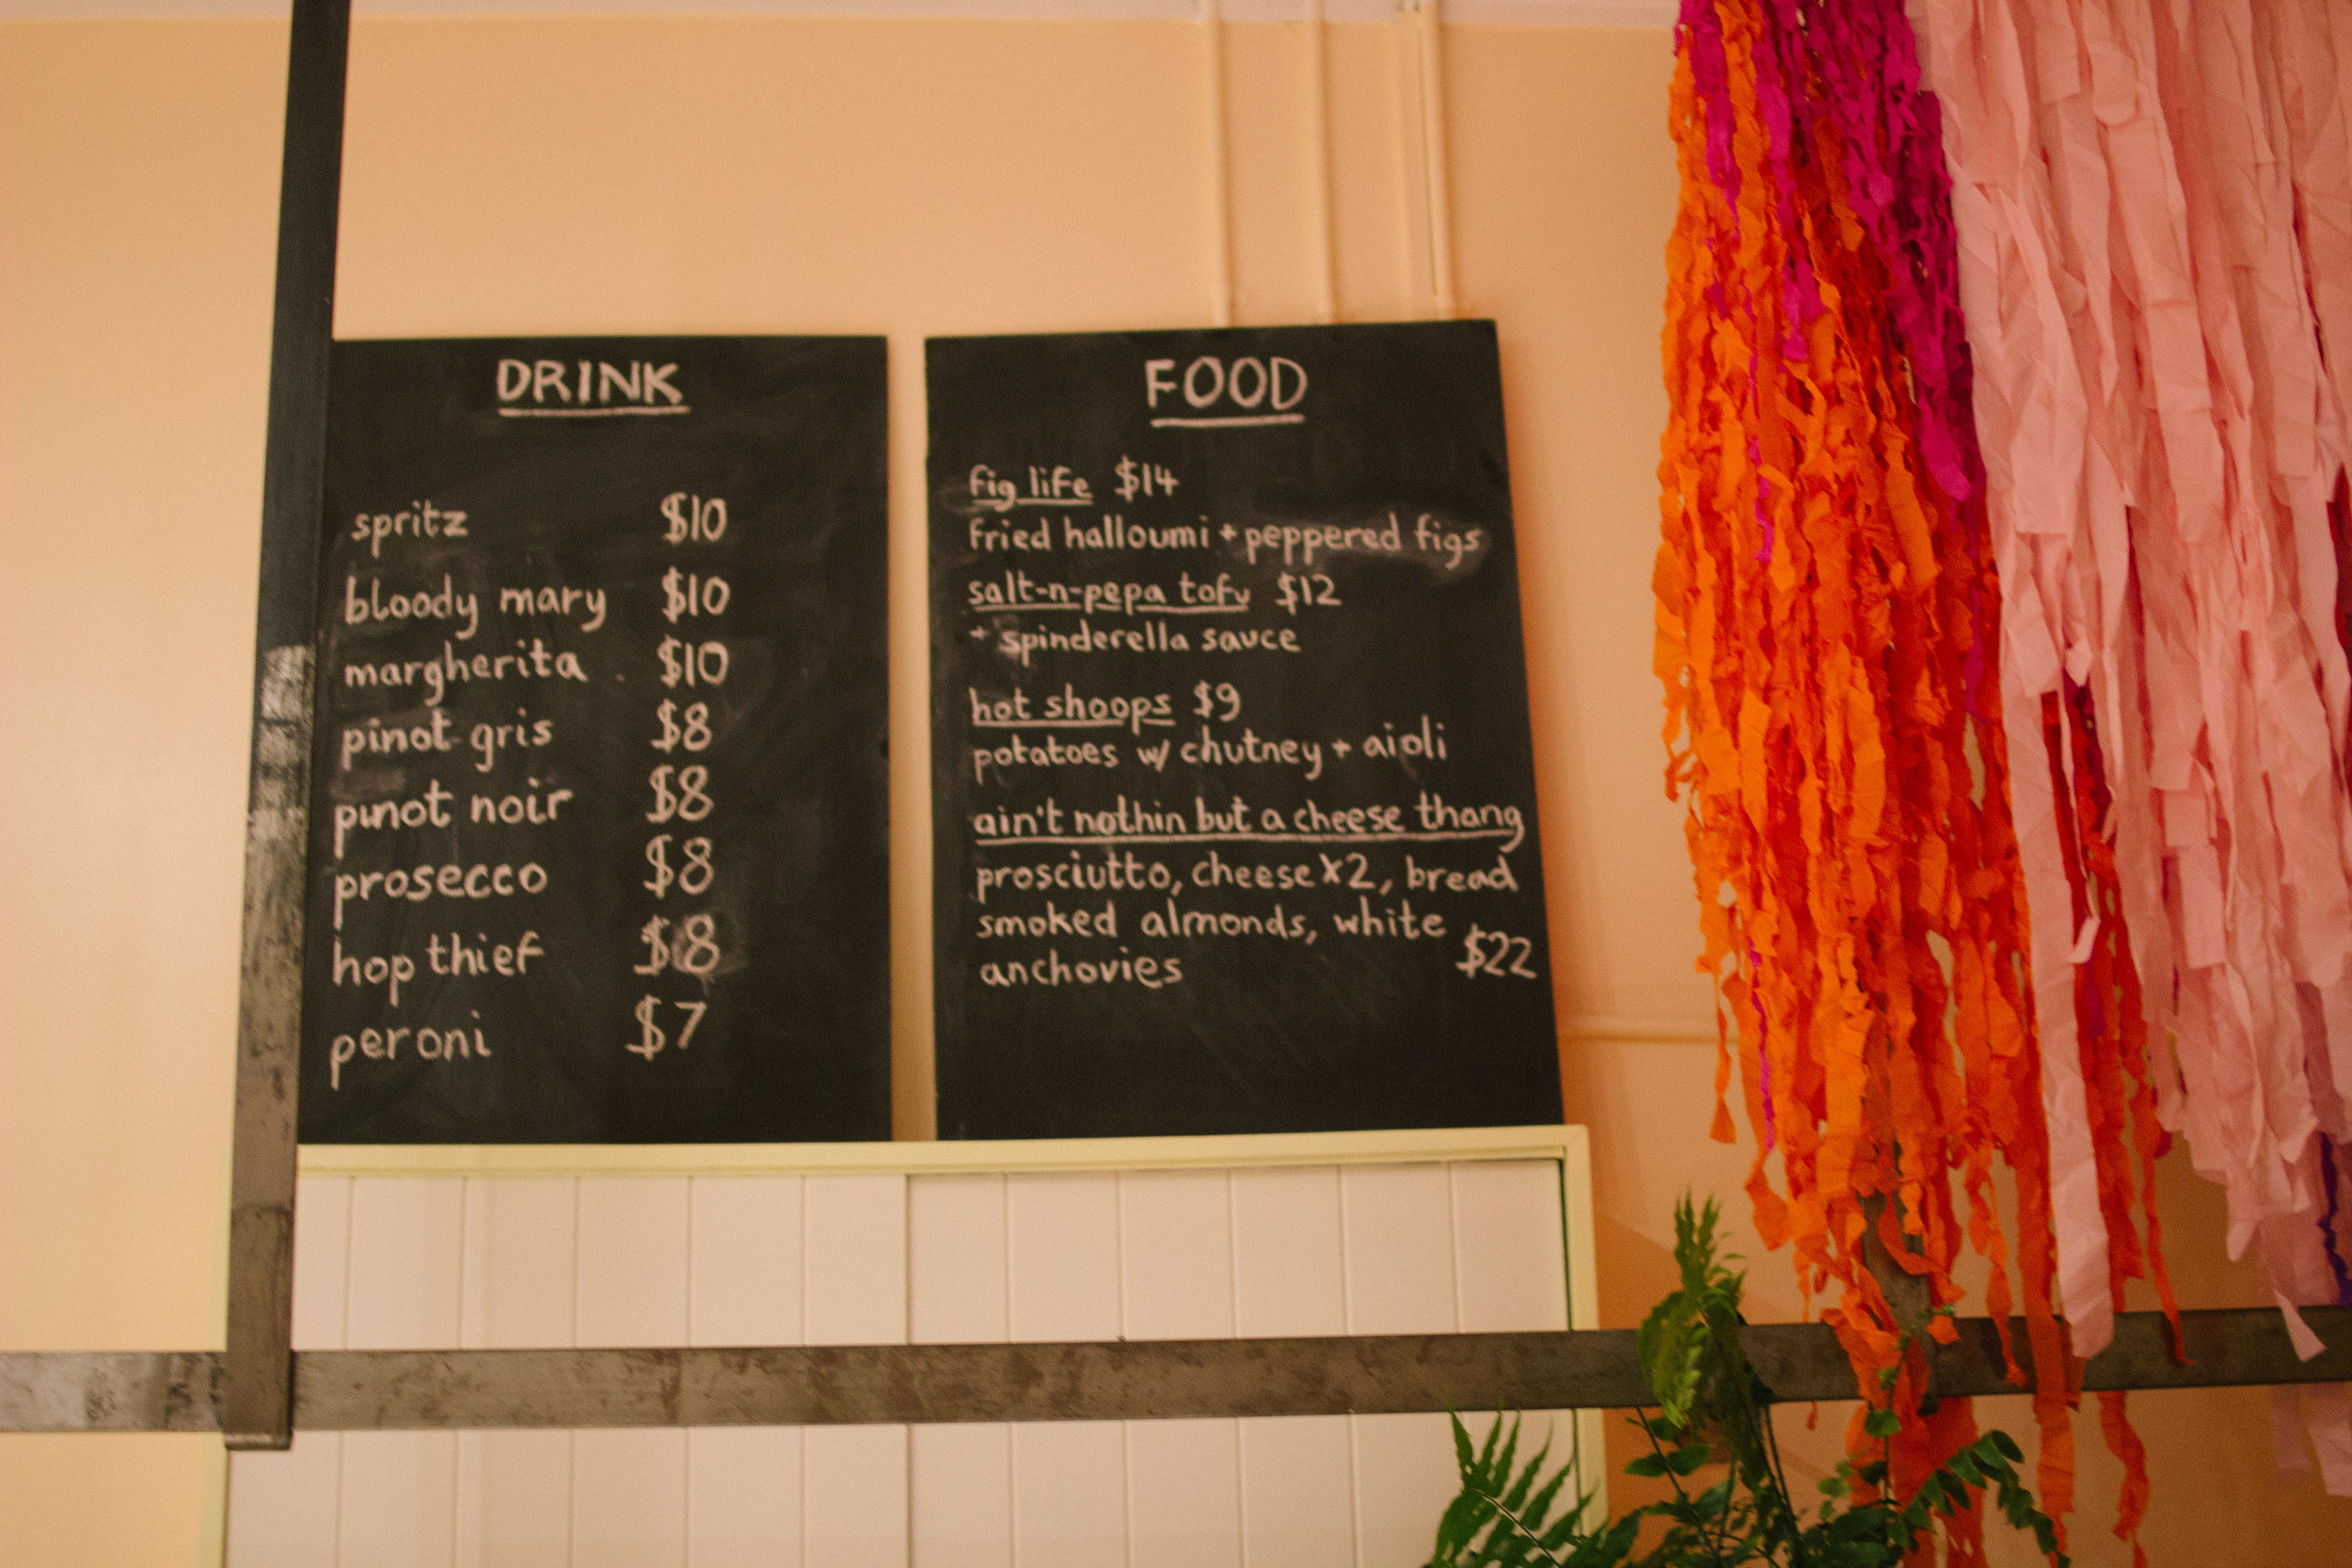 DRINK
spritz $10
bloody mary $10
margherita $10
pinot gris $8
pinot noir $8
prosecco $8
hop thief $8
peroni $7
FOOD
fig life $14
fried halloumi + peppered figs
salt-n-pepa tofu $12
+ spinderella sauce
hot shoops $9
potatoes w/ chutney + aioli
ain't nothin but a cheese thang
prosciutto, cheese x2, bread
smoked almonds, white
anchovies $22